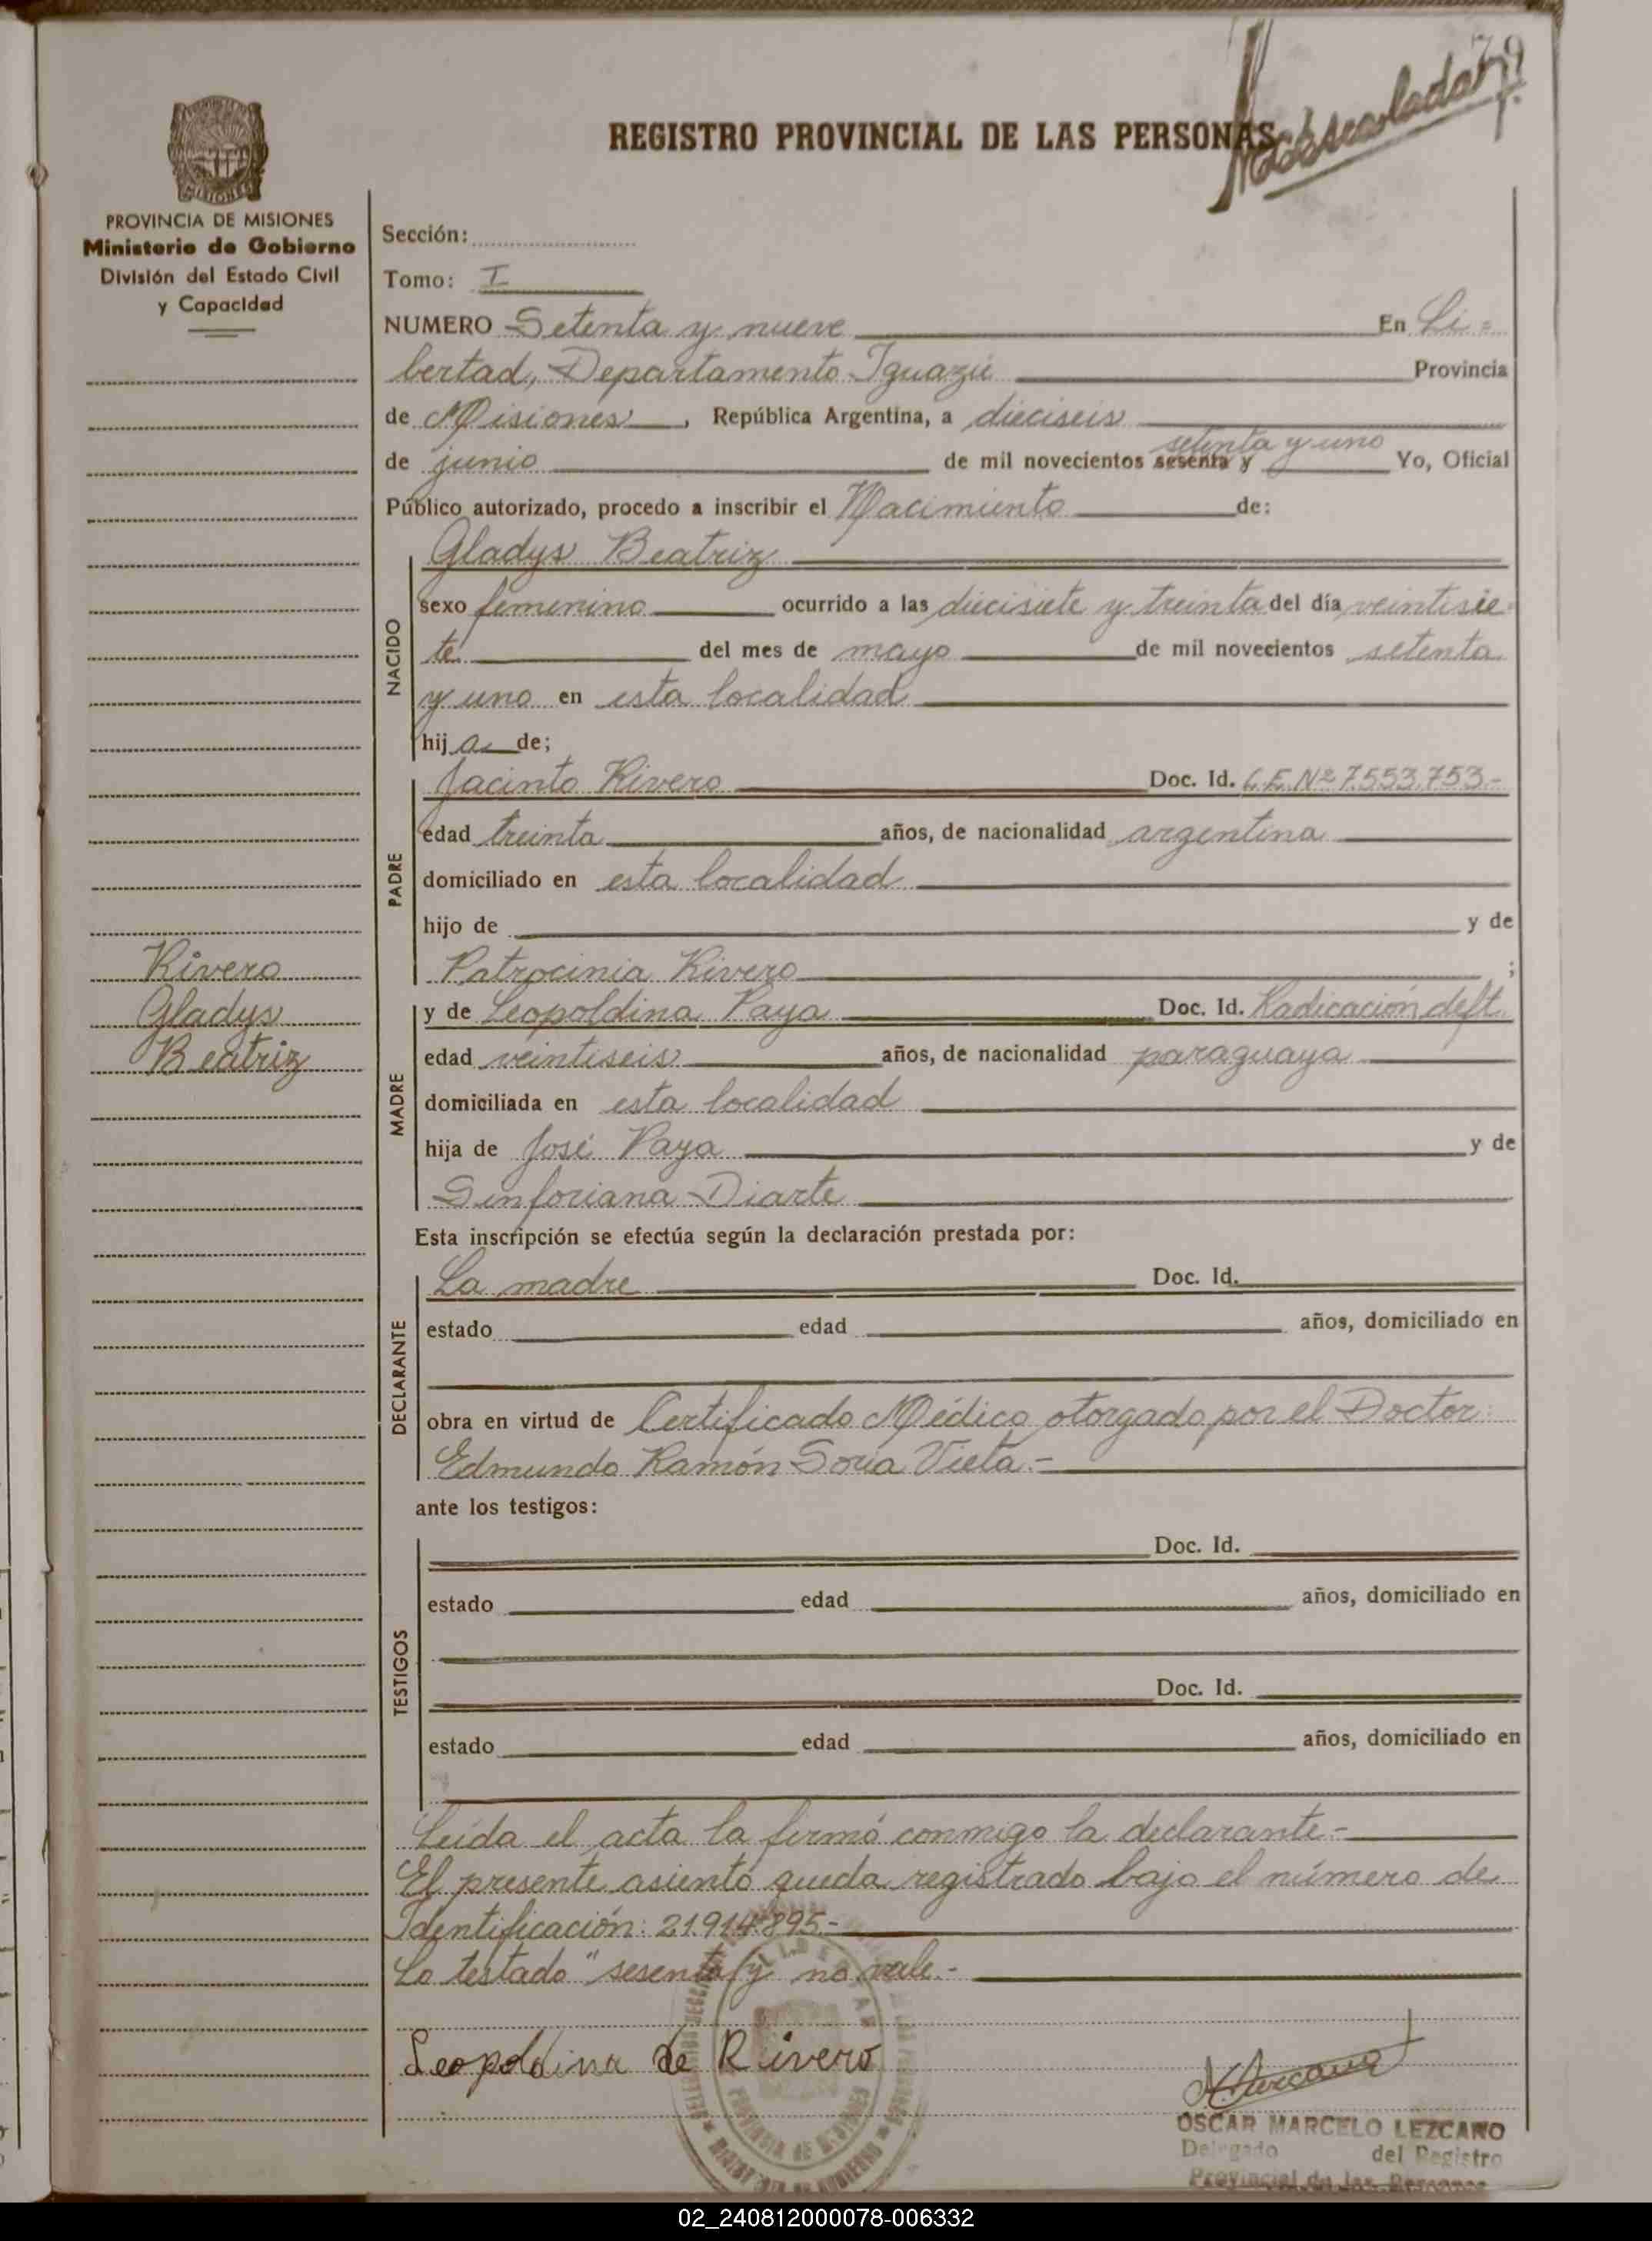 79
REGISTRO PROVINCIAL DE LAS PERSONAS
MISIONES
PROVINCIA DE MISIONES
Ministerio de Gobierno
División del Estado Civil
y Capacidad
Rivero
Gladys
Beatriz
Sección:
Tomo: I
NUMERO Setenta y nueve En Li=
bertad, Departamento Iguazú Provincia
de Misiones, República Argentina, a dieciseis
setenta y uno
de junio de mil novecientos sesenta y Yo, Oficial
Público autorizado, procedo a inscribir el Nacimiento de:
Gladys Beatriz
NACIDO
sexo femenino ocurrido a las diecisiete y treinta del día veintisie-
te del mes de mayo de mil novecientos setenta
y uno en esta localidad
hija de;
Jacinto Rivero Doc. Id. L.E. Nº 7.553.753.-
PADRE
edad treinta años, de nacionalidad argentina
domiciliado en esta localidad
hijo de y de
Patrocinia Rivero ;
y de Leopoldina Paya Doc. Id. Radicación deft.
MADRE
edad veintiseis años, de nacionalidad paraguaya
domiciliada en esta localidad
hija de José Paya y de
Sinforiana Diarte
Esta inscripción se efectúa según la declaración prestada por:
La madre Doc. Id.
DECLARANTE
estado edad años, domiciliado en
obra en virtud de Certificado Médico otorgado por el Doctor
Edmundo Ramón Soria Vieta.-
ante los testigos:
Doc. Id.
TESTIGOS
estado edad años, domiciliado en
Doc. Id.
estado edad años, domiciliado en
Leída el acta la firmó conmigo la declarante.-
El presente asiento queda registrado bajo el número de
Identificación: 21.914.895.-
Lo testado "sesenta y no vale.-
Leopoldina de Rivero
OSCAR MARCELO LEZCANO
Delegado del Registro
Provincial de las Personas
02_240812000078-006332